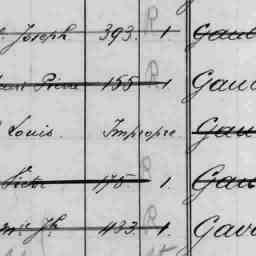 Joseph 393. R 1. Gau
Pierre 155 R 1. Gau
Louis. Impropre Gau
Victor 175. R 1. Gau
Jh 433. R 1. Gau